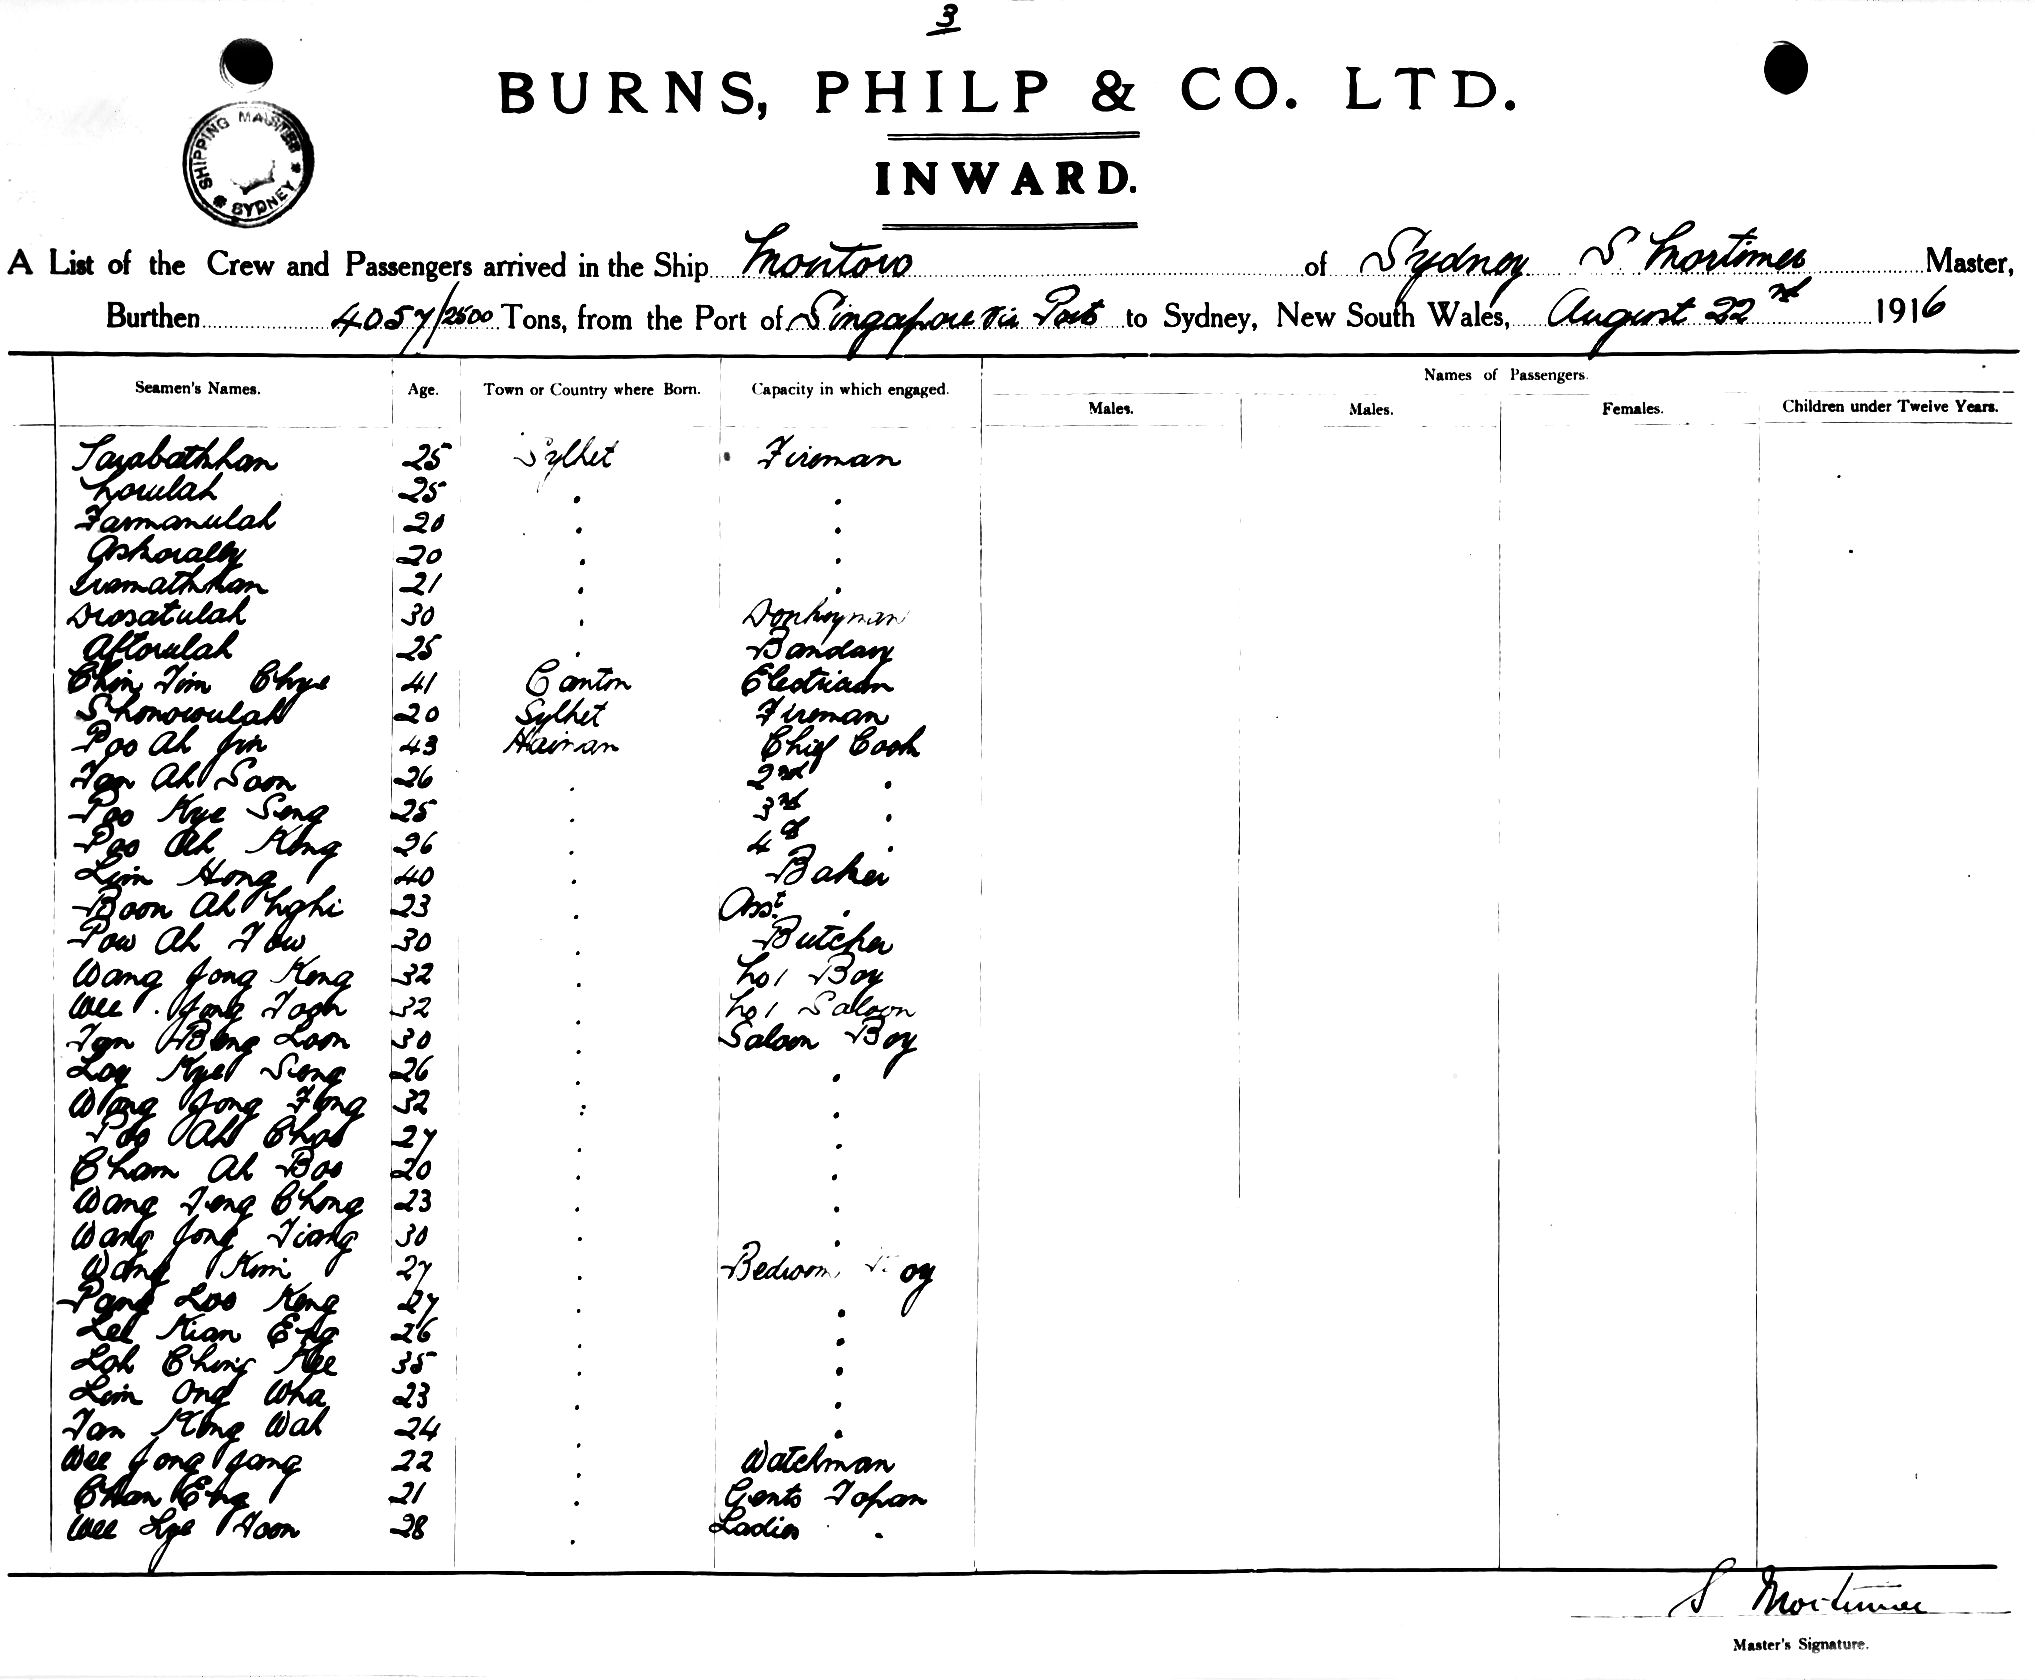 3
BURNS, PHILP & CO. LTD.
SHIPPING MASTER
SYDNEY
INWARD.
A List of the Crew and Passengers arrived in the Ship Montoro of Sydney S. Mortimer Master,
Burthen 4057/2500 Tons, from the Port of Singapore via Ports to Sydney, New South Wales, August 22nd 1916
Names of Passengers.
Seamen's Names. Age. Town or Country where Born. Capacity in which engaged. Males. Males. Females. Children under Twelve Years.
25 Sylhet Fireman
Norulah 25 . .
Farmanulah 20 . .
Askorally 20 . .
21 . .
30 . Donkeyman
Aftorulah 25 . Bandary
Chin Tim Chye 41 Canton Electrician
Shonoroulah 20 Sylhet Fireman
Poo Ah Jin 43 Hainan Chief Cook
Tan Ah Soon 26 . 2nd .
Poo Kye Seng 25 . 3rd .
Poo Ah Kong 26 . 4th .
Lim Hong 40 . Baker
Boon Ah Nghi 23 . Asst. .
Pow Ah Tow 30 . Butcher
Wang Jong Keng 32 . No 1 Boy
Wee Jong Toon 32 . No 1 Saloon
Tan Beng Loon 30 . Saloon Boy
Loy Kye Seng 26 . .
Wong Jong Fong 32 . .
Poo Ah Choi 27 . .
Cham Ah Boo 20 . .
Wang Teng Chong 23 . .
Wang Jong Tiang 30 . .
Wong Kim 27 . Bedroom Boy
Pang Loo Keng 27 . .
Lee Kian Eng 26 . .
Loh Ching Kee 35 . .
Lim Ong Wha 23 . .
Tan Kong Wah 24 . .
Wee Jong Jang 22 . Watchman
Chan Eng 21 . Gents Topan
Wee Lye Toon 28 . Ladies .
S Mortimer
Master's Signature.